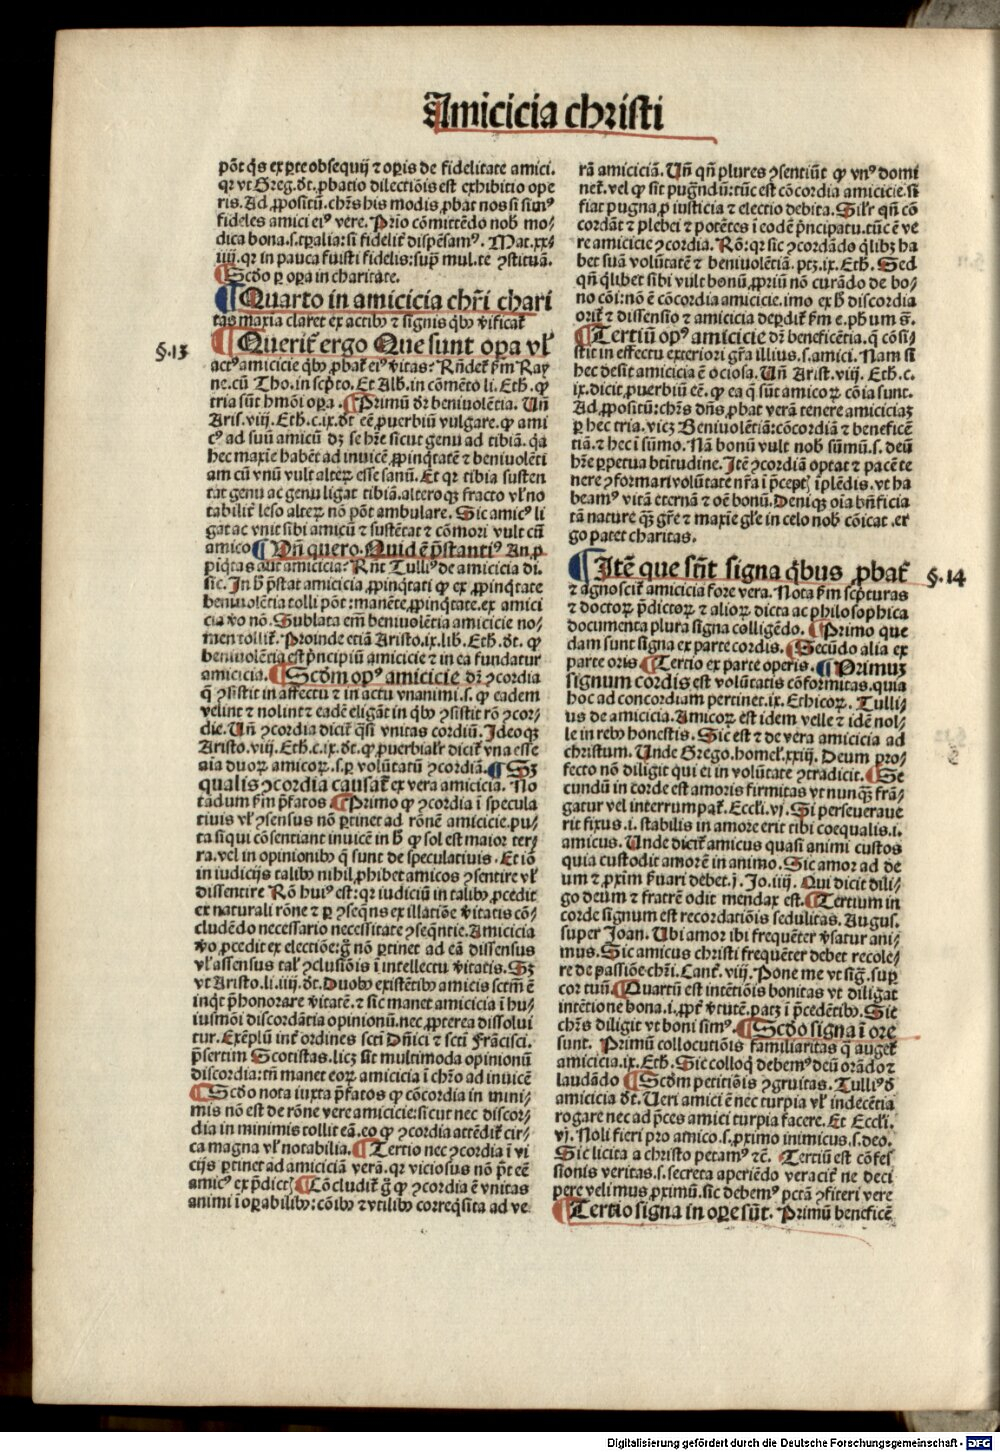 Amicicia christi
põt q̃s ex ꝑte obsequij ⁊ oꝑis de fidelitate amici.
qꝛ vt Greg. d̃t. ꝓbatio dilectiõis est exhibitio ope
ris. Ad ꝓpositũ. ch̃rs his modis ꝓbat nos si simꝰ
fideles amici eiꝰ vere. Prio cõmittẽdo nob̃ mo⸗
dica bona .s. tꝑalia: si fidelit̃ dispẽsamꝰ. Mat. xx⸗
iiij. qꝛ in pauca fuisti fidelis: suꝑ mul. te ꝯstituã.
¶ Scd̃o ꝑ oꝑa in charitate.
¶ Quarto in amicicia chr̃i chari
tas maxĩa claret ex actibꝰ ⁊ signis q̃bꝰ v̾ificat̃
§.13
¶ Querit̃ ergo Que sunt oꝑa vł
actꝰ amicicie q̃bꝰ ꝓbat̃ eiꝰ v̾itas? Rñdet̃ ẜm Ray
ne. cũ Tho. in scp̃to. Et Alb̃. in cõmẽto li. Eth. ꝙ
tria sũt hmõi oꝑa. ¶ Primũ d̃r beniuolẽtia. Uñ
Aris. viij. Eth. c. ix. d̃t eẽ ꝓuerbiũ vulgare. ꝙ ami
cꝰ ad suũ amicũ dꝫ se h̃re sicut genu ad tibiã. q̃a
hec maxie habẽt ad inuicẽ ꝓpinq̃tatẽ ⁊ beniuolẽti
am cũ vnũ vult alteꝝ esse sanũ. Et qꝛ tibia susten
tat genu ac genu ligat tibiã. altero qꝫ fracto vł no
tabilit̃ leso alteꝝ nõ põt ambulare. Sic amicꝰ li
gat ac vnit sibi amicũ ⁊ sustẽtat ⁊ cõmori vult cũ
amico ¶ Uñ quero. Quid ẽ p̃stantiꝰ An ꝓ
piq̃tas aut amicicia? Rñt Tulliꝰ de amicicia di.
sic. In h̃ p̃stat amicicia ꝓpinq̃tati ꝙ ex ꝓpinq̃tate
beniuolẽtia tolli põt: manẽte ꝓpinq̃tate. ex amici
cia v̾o nõ. Sublata em̃ beniuolẽtia amicicie no⸗
men tollit̃. Proinde etiã Aristo. ix. lib. Eth. d̃t. ꝙ
beniuolẽtia est p̃ncipiũ amicicie ⁊ in ea fundatur
amicicia. ¶ Scd̃m opꝰ amicicie d̃r ꝯcordia
q̃ ꝯsistit in affectu ⁊ in actu vnanimi .s. ꝙ eadem
velint ⁊ nolint ⁊ eadẽ eligãt in q̃bꝰ ꝯsistit rõ ꝯcor⸗
die. Uñ ꝯcordia dicit̃ q̃si vnitas cordiũ. Ideo qꝫ
Aristo. viij. Eth. c. ix. d̃t. ꝙ ꝓuerbialr̃ dicit̃ vna esse
aĩa duoꝝ amicoꝝ .s. ꝑ volũtatũ ꝯcordiã. ¶ Sꝫ
qualis ꝯcordia causat̃ ex vera amicicia. No
tadum ẜm p̃fatos ¶ Primo ꝙ ꝯcordia ĩ specula
tiuis vł ꝯsensus nõ ꝑtinet ad rõnẽ amicicie. pu⸗
ta si qui cõsentiant inuicẽ in h̃ ꝙ sol est maior ter⸗
ra. vel in opinionibꝰ q̃ sunt de speculatiuis. Et iõ
in iudicijs talibꝰ nihil ꝓhibet amicos ꝯsentire vł
dissentire Rõ huiꝰ est: qꝛ iudiciũ in talibꝰ ꝓcedit
ex naturali rõne ⁊ ꝑ ꝯseq̃ns ex illatiõe v̾itatis cõ⸗
cludẽdo necessario necessitate ꝯseq̃ntie. Amicicia
v̾o ꝓcedit ex electiõe: g̃ nõ ꝑtinet ad eã dissensus
vł assensus tal̃ ꝯclusiõis ĩ intellectu v̾itatis. Sꝫ
vt Aristo. li. iiij. d̃t. Duobꝰ existẽtibꝰ amicis sctm̃ ẽ
inq̃t p̃honorare v̾itatẽ. ⁊ sic manet amicicia ĩ hu⸗
iusmõi discordãtia opinionũ. nec ꝓpterea dissolui
tur. Exẽplũ int̃ ordines scti Dñici ⁊ scti Frãcisci.
p̃sertim Scotistas. licꝫ sit multimoda opinionũ
discordia: tñ manet eoꝝ amicicia ĩ chr̃o ad inuicẽ
¶ Scd̃o nota iuxta p̃fatos ꝙ cõcordia in mini⸗
mis nõ est de rõne vere amicicie: sicut nec discor⸗
dia in minimis tollit eã. eo ꝙ ꝯcordia attẽdit̃ cir⸗
ca magna vł notabilia. ¶ Tertio nec ꝯcordia ĩ vi
cijs ꝑtinet ad amiciciã verã. qꝛ viciosus nõ p̃t eẽ
amicꝰ ex p̃dict̃. ¶ Cõcludit̃ g̃ ꝙ ꝯcordia ẽ vnitas
animi ĩ oꝑabilibꝰ: cõibꝰ ⁊ vtilibꝰ correq̃sita ad ve
rã amiciciã. Uñ qñ plures ꝯsentiũt ꝙ vnꝰ domi
net̃. vel ꝙ sit pugñdũ: tũc est cõcordia amicicie. si
fiat pugna ꝓ iusticia ⁊ electio debita. Silr̃ qñ cõ
cordãt ⁊ plebei ⁊ potẽtes ĩ eodẽ p̃ncipatu. tũc ẽ ve
re amicicie ꝯcordia. Rõ: qꝛ sic ꝯcordãdo q̃libꝫ ha
bet suã volũtatẽ ⁊ beniuolẽtiã. ptꝫ. ix. Eth. Sed
qñ q̃libet sibi vult bonũ ꝓpriũ nõ curãdo de bo⸗
no cõi: nõ ẽ cõcordia amicicie. imo ex h̃ discordia
orit̃ ⁊ dissensio ⁊ amicicia deꝑdit̃ ẜm e. ph̃um s̃.
¶ Tertiũ opꝰ amicicie d̃r beneficẽtia. q̃ cõsi⸗
stit in effectu exteriori gr̃a illius .s. amici. Nam si
hec desit amicicia ẽ ociosa. Uñ Arist. viij. Eth. c.
ix. dicit ꝓuerbiũ eẽ. ꝙ ea q̃ sũt amicoꝝ cõia sunt.
Ad ꝓpositũ: ch̃rs dñs ꝓbat verã tenere amiciciaꝫ
ꝑ hec tria. vicꝫ Beniuolẽtiã: cõcordiã ⁊ beneficẽ
tiã. ⁊ hec ĩ sũmo. Nã bonũ vult nob̃ sũmũ .s. deũ
h̃re ꝑpetua btitudine. Itẽ ꝯcordiã optat ⁊ pacẽ te
nere ꝯformari volũtate nr̃a ĩ p̃cept̃ iplẽdis. vt ha
beamꝰ vitã eternã ⁊ oẽ bonũ. Deniqꝫ oĩa bñficia
tã nature qꝫ gr̃e ⁊ maxie gl̃e in celo nob̃ cõicat. er
go patet charitas.
¶ Itẽ que sũt signa q̃bus ꝓbat̃
§.14
⁊ agnoscit̃ amicicia fore vera. Nota ẜm scp̃turas
⁊ doctoꝝ p̃dictoꝝ ⁊ alioꝝ dicta ac philosophica
documenta plura signa colligẽdo. ¶ Primo que
dam sunt signa ex parte cordis. ¶ Secũdo alia ex
parte oris. ¶ Tertio ex parte operis. ¶ Primuꝫ
signum cordis est volũtatis cõformitas. quia
hoc ad concordiam pertinet. ix. Ethicoꝝ. Tulli⸗
us de amicicia. Amicoꝝ est idem velle ⁊ idẽ nol⸗
le in rebꝰ honestis. Sic est ⁊ de vera amicicia ad
christum. Unde Grego. homel̃. xxiij. Deum pro⸗
fecto nõ diligit qui ei in volũtate ꝯtradicit. ¶ Se
cundũ in corde est amoris firmitas vt nunqꝫ frã⸗
gatur vel interrumpat̃. Eccłi. vj. Si perseueraue
rit fixus .i. stabilis in amore erit tibi coequalis .i.
amicus. Unde dicit̃ amicus quasi animi custos
quia custodit amorẽ in animo. Sic amor ad de
um ⁊ ꝓxim̃ ẜuari debet. j. Jo. iiij. Qui dicit dili⸗
go deum ⁊ fratrẽ odit mendax est. ¶ Tertium in
corde signum est recordatiõis sedulitas. Augus.
super Joan. Ubi amor ibi frequẽter v̾satur ani⸗
mus. Sic amicus christi frequẽter debet recole⸗
re de passiõe chr̃i. Cant̃. viij. Pone me vt sig̃. suꝑ
cor tuũ. ¶ Quartũ est intẽtiõis bonitas vt diligat
intẽtione bona .i. ꝓpt̃ v̾tutẽ. patꝫ ĩ p̃cedẽtibꝰ. Sic
ch̃rs diligit vt boni simꝰ. ¶ Scd̃o signa ĩ ore
sunt. Primũ collocutiõis familiaritas q̃ auget̃
amicicia. ix. Eth. Sic colloq̃ debemꝰ deũ orãdo ⁊
laudãdo ¶ Scd̃m petitiõis ꝯgruitas. Tulliꝰ d̃
amicicia d̃t. Ueri amici ẽ nec turpia vł indecẽtia
rogare nec ad p̃ces amici turpia facere. Et Eccłi.
vj. Noli fieri pro amico .s. ꝓximo inimicus .s. deo.
Sic licita a christo petamꝰ ⁊c̃. ¶ Tertiũ est cõfes
sionis veritas .s. secreta aperiẽdo veracit̃ ne deci
pere velimus ꝓximũ. sic debemꝰ pctã ꝯfiteri vere
¶ Tertio signa in oꝑe sũt. Primũ beneficẽ
Digitalisierung gefördert durch die Deutsche Forschungsgemeinschaft - DFG